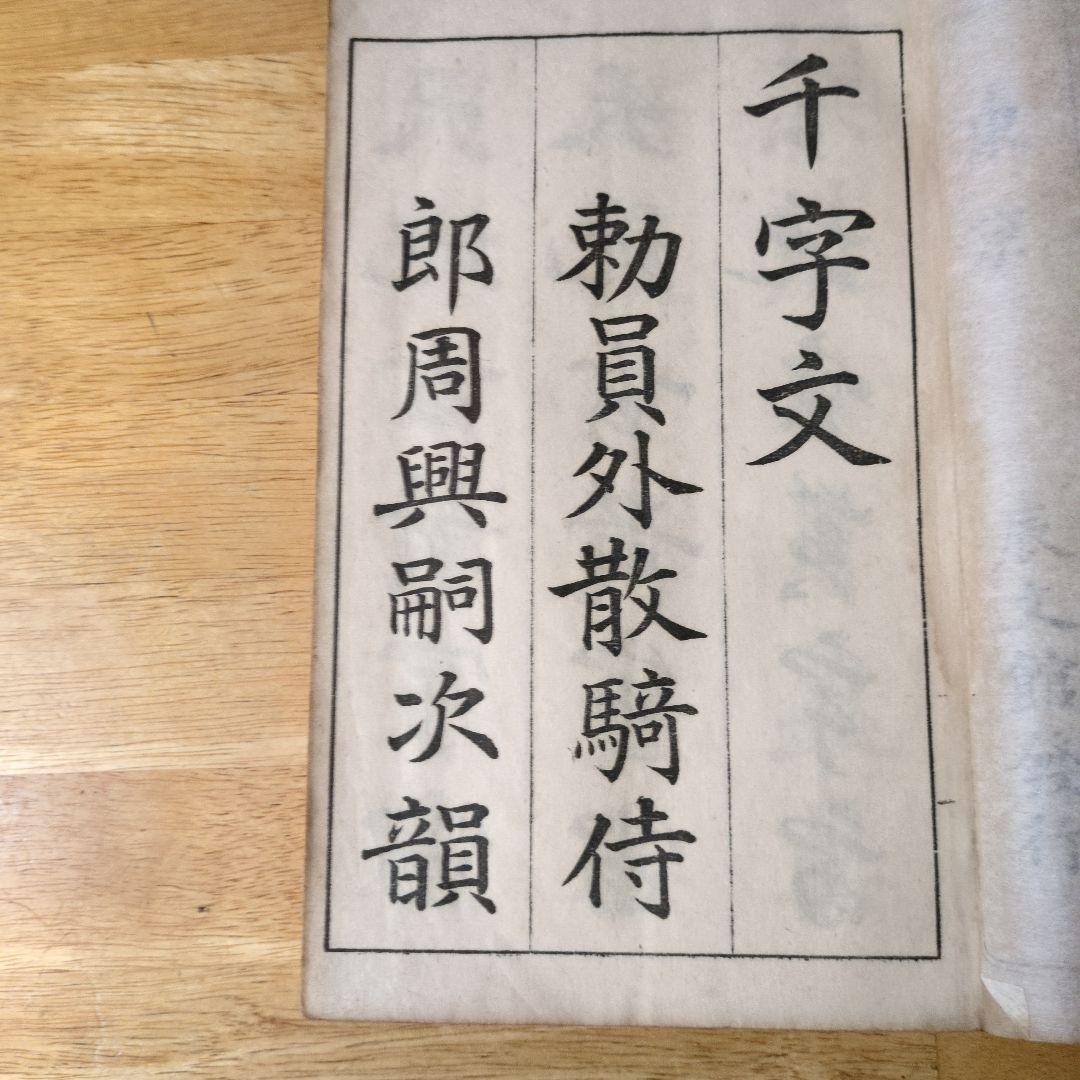 千字文
勅員外散騎侍
郎周興嗣次韻